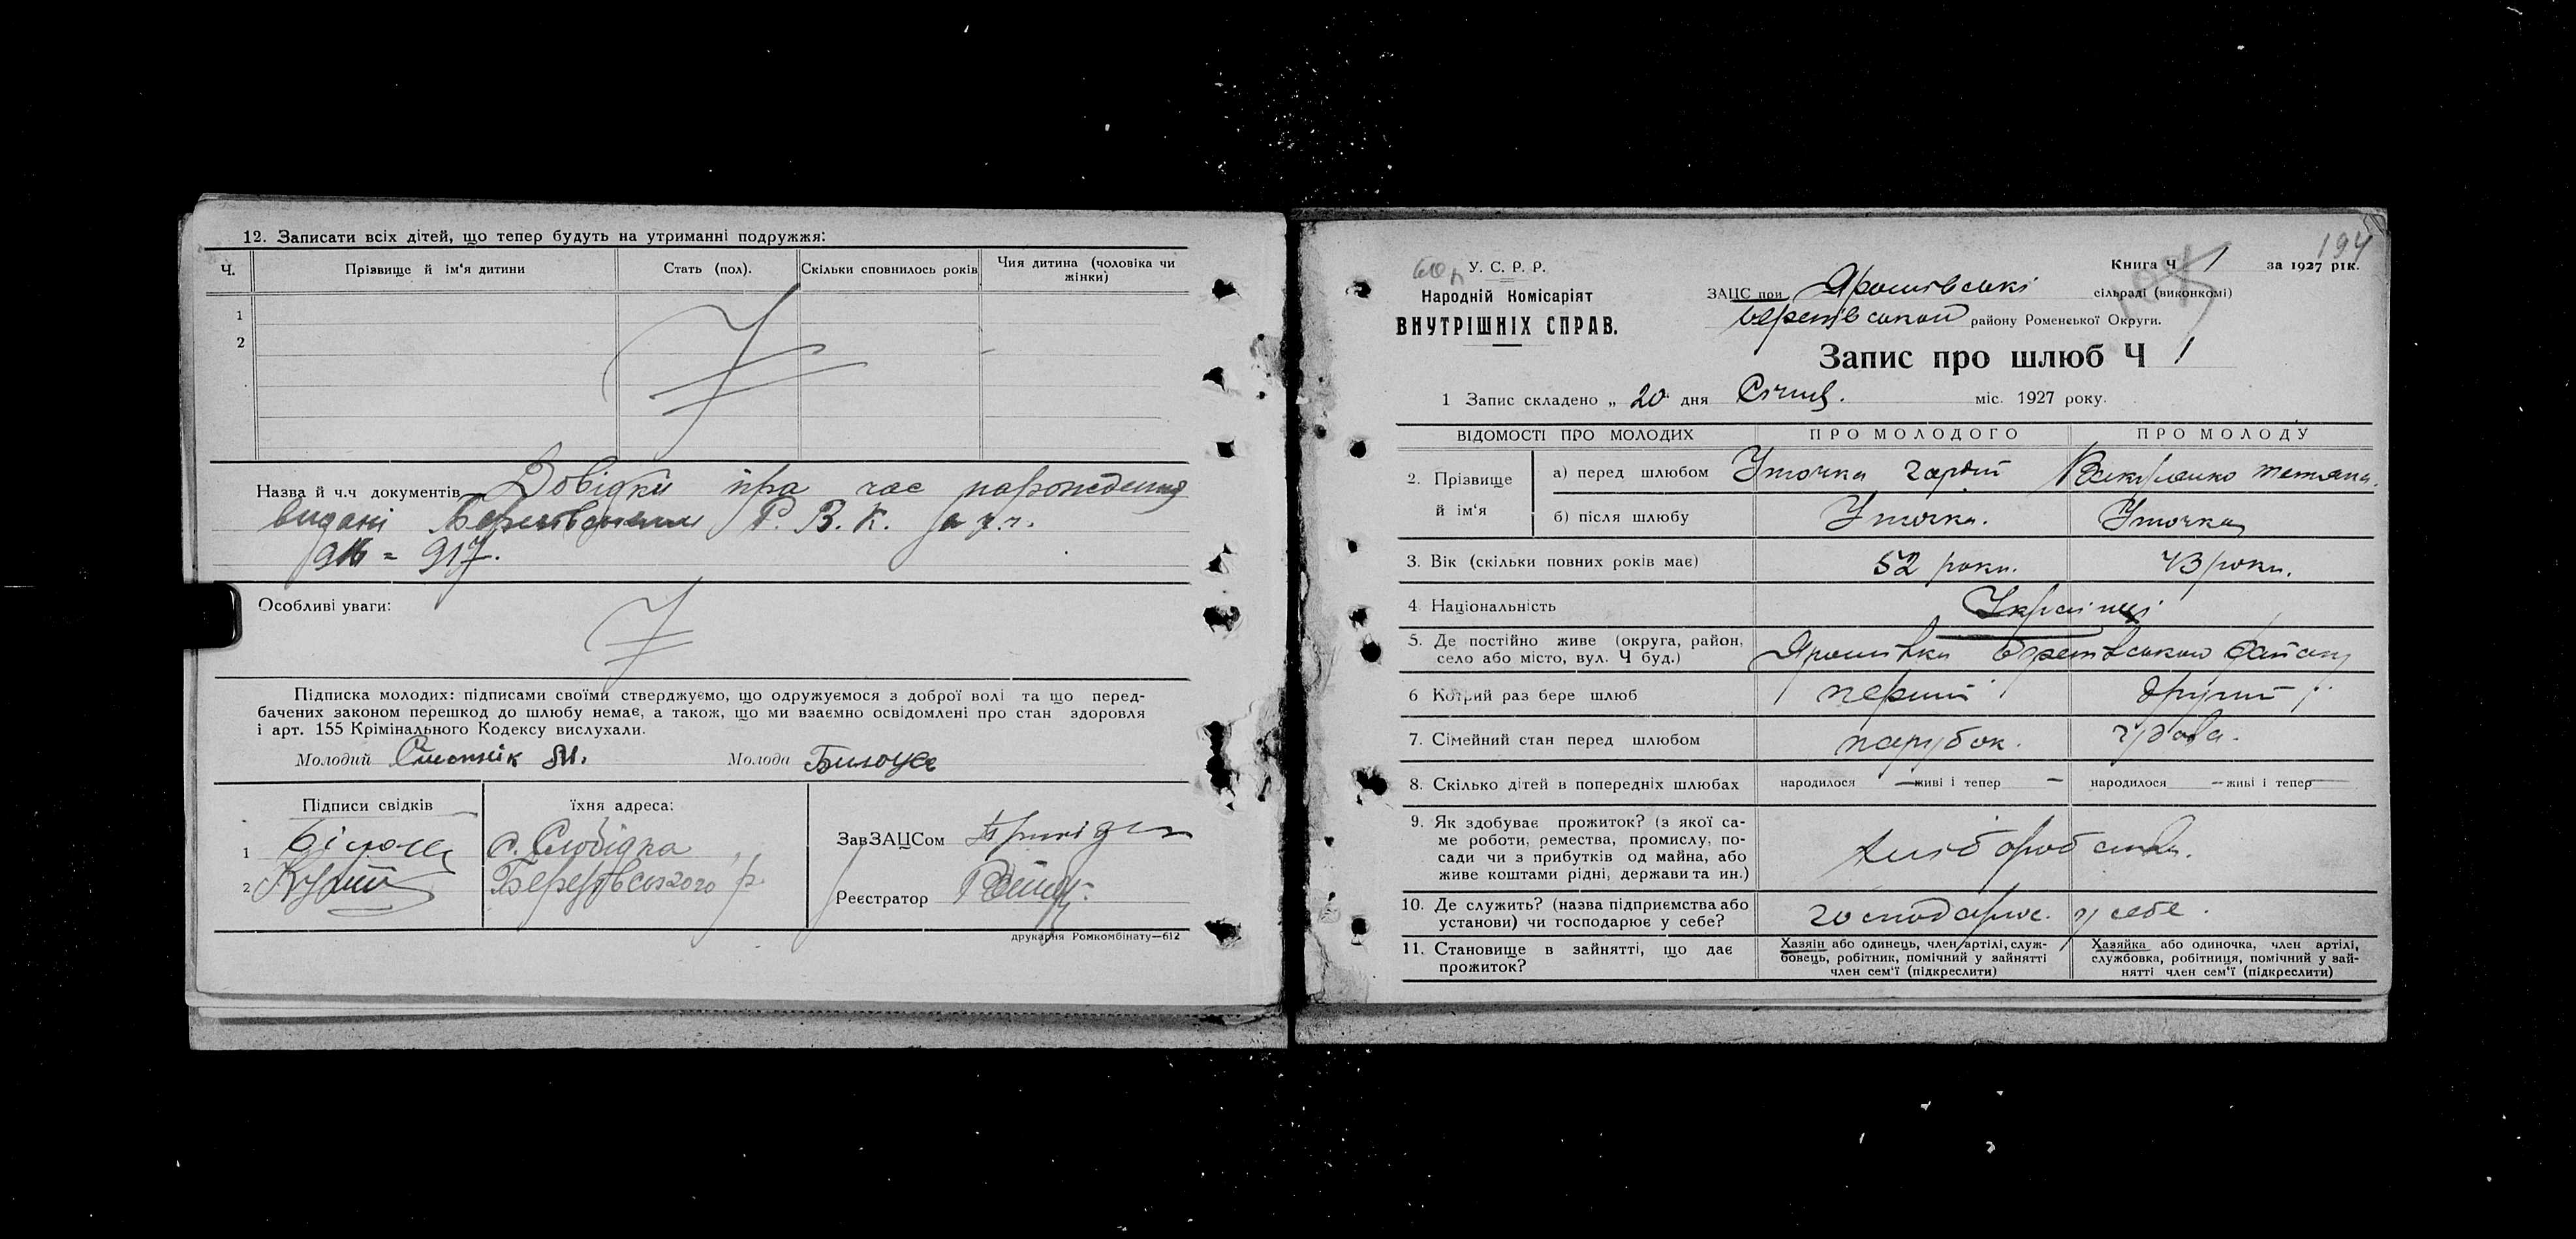 12. Записати всіх дітей, що тепер будуть на утриманні подружжя:
Ч. Прізвище й ім'я дитини Стать (пол). Скільки сповнилось років Чия дитина (чоловіка чи жінки)
1
2
Назва й ч.ч документів Довідки про час народження
видані Р. В. К. за ч.ч.
916 = 917.
Особливі уваги:
Підписка молодих: підписами своїми стверджуємо, що одружуємося з доброї волі та що перед-
бачених законом перешкод до шлюбу немає, а також, що ми взаємно освідомлені про стан здоровля
і арт. 155 Крімінального Кодексу вислухали.
Молодий Молода Билоус
Підписи свідків їхня адреса:
1 с. Слобідка
2 Березівського р.
ЗавЗАЦСом
Реєстратор
друкарня Ромкомбінату—612
194
У. С. Р. Р.
Народній Комісаріят
ВНУТРІШНІХ СПРАВ.
Книга Ч 1 за 1927 рік.
ЗАЦС при Ярошівські сільраді (виконкомі)
району Роменської Округи.
Запис про шлюб Ч 1
1 Запис складено „ 20 дня Січня. міс. 1927 року.
ВІДОМОСТІ ПРО МОЛОДИХ ПРО МОЛОДОГО ПРО МОЛОДУ
2. Прізвище й ім'я
а) перед шлюбом Уточка Гордій Тетяна.
б) після шлюбу Уточка. Уточка
3. Вік (скільки повних років має) 52 роки. 43 роки.
4 Національність Українці
5. Де постійно живе (округа, район,
село або місто, вул. Ч буд.) Ярошівка району
6 Котрий раз бере шлюб перший другий
7. Сімейний стан перед шлюбом парубок. удова.
8. Скілько дітей в попередніх шлюбах народилося — живі і тепер — народилося — живі і тепер —
9. Як здобуває прожиток? (з якої са-
ме роботи, ремества, промислу, по-
сади чи з прибутків од майна, або
живе коштами рідні, держави та ин.) хліборобство.
10. Де служить? (назва підприємства або
установи) чи господарює у себе? господарює у себе.
11. Становище в зайнятті, що дає
прожиток?
Хазяін або одинець, член артілі, служ-
бовець, робітник, помічний у зайнятті
член сем'ї (підкреслити)
Хазяйка або одиночка, член артілі,
службовка, робітниця, помічний у зай-
нятті член сем'ї (підкреслити)